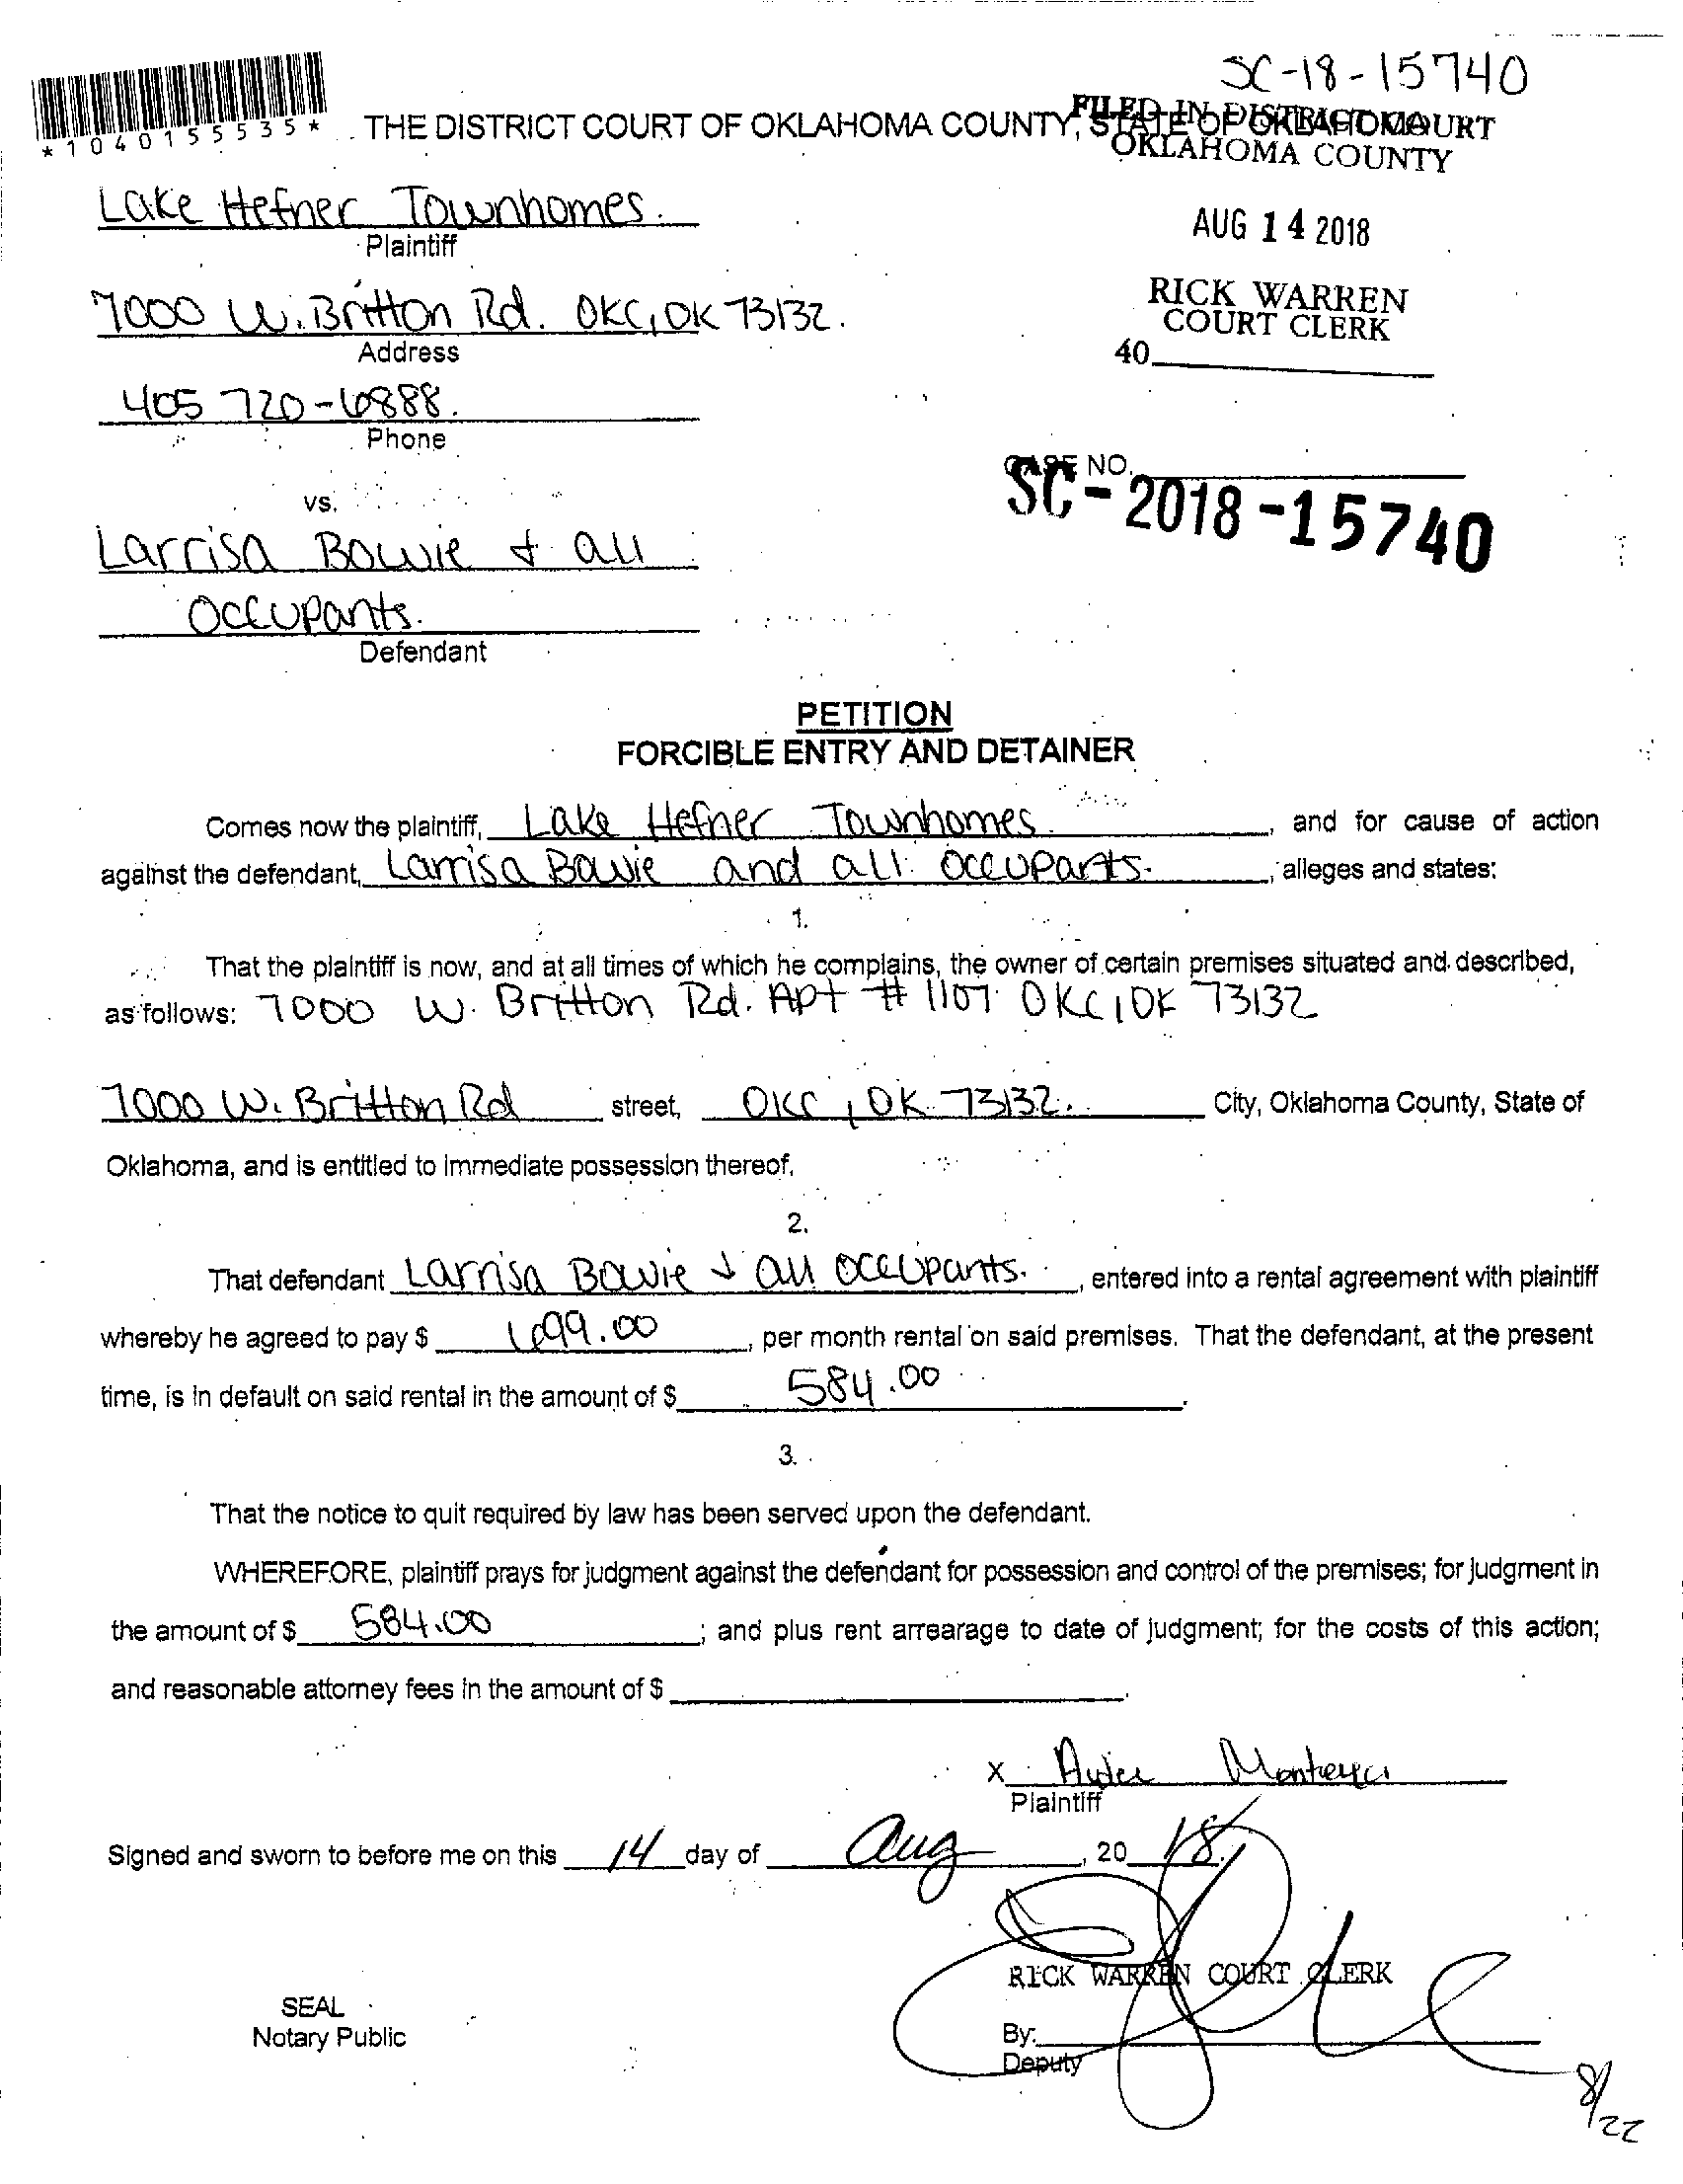 SC-18-15740
*1040155535*
THE DISTRICT COURT OF OKLAHOMA COUNTY, STATE OF OKLAHOMA
FILED IN DISTRICT COURT
OKLAHOMA COUNTY
Lake Hefner Townhomes.
Plaintiff
AUG 14 2018
7000 W. Britton Rd. OKC, OK 73132.
Address
RICK WARREN
COURT CLERK
40
405 720-6888.
Phone
CASE NO.
SC-2018-15740
vs.
Larrisa Bowie & all
Occupants.
Defendant
PETITION
FORCIBLE ENTRY AND DETAINER
Comes now the plaintiff, Lake Hefner Townhomes. , and for cause of action
against the defendant, Larrisa Bowie and all occupants. , alleges and states:
1.
That the plaintiff is now, and at all times of which he complains, the owner of certain premises situated and described,
as follows: 7000 W. Britton Rd. Apt # 1107 OKC, OK 73132
7000 W. Britton Rd street, OKC, OK 73132. City, Oklahoma County, State of
Oklahoma, and is entitled to immediate possession thereof.
2.
That defendant Larrisa Bowie & all occupants. , entered into a rental agreement with plaintiff
whereby he agreed to pay $ 699.00 , per month rental on said premises. That the defendant, at the present
time, is in default on said rental in the amount of $ 584.00 .
3.
That the notice to quit required by law has been served upon the defendant.
WHEREFORE, plaintiff prays for judgment against the defendant for possession and control of the premises; for judgment in
the amount of $ 584.00 ; and plus rent arrearage to date of judgment; for the costs of this action;
and reasonable attorney fees in the amount of $ .
X
Plaintiff
Signed and sworn to before me on this 14 day of Aug , 20 18.
RICK WARREN COURT CLERK
SEAL
Notary Public
By:
Deputy
8/22